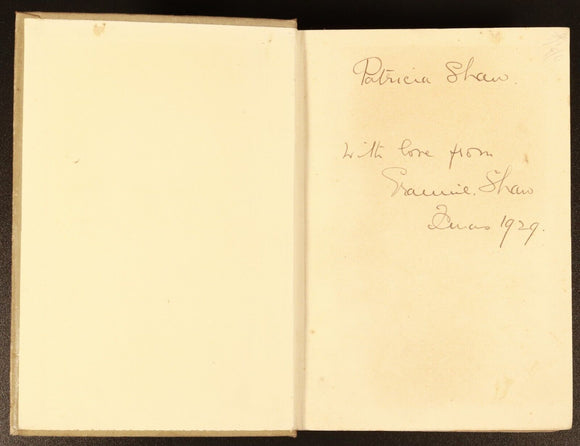 Patricia Shaw.
With love from
Grannie. Shaw
Xmas 1929.